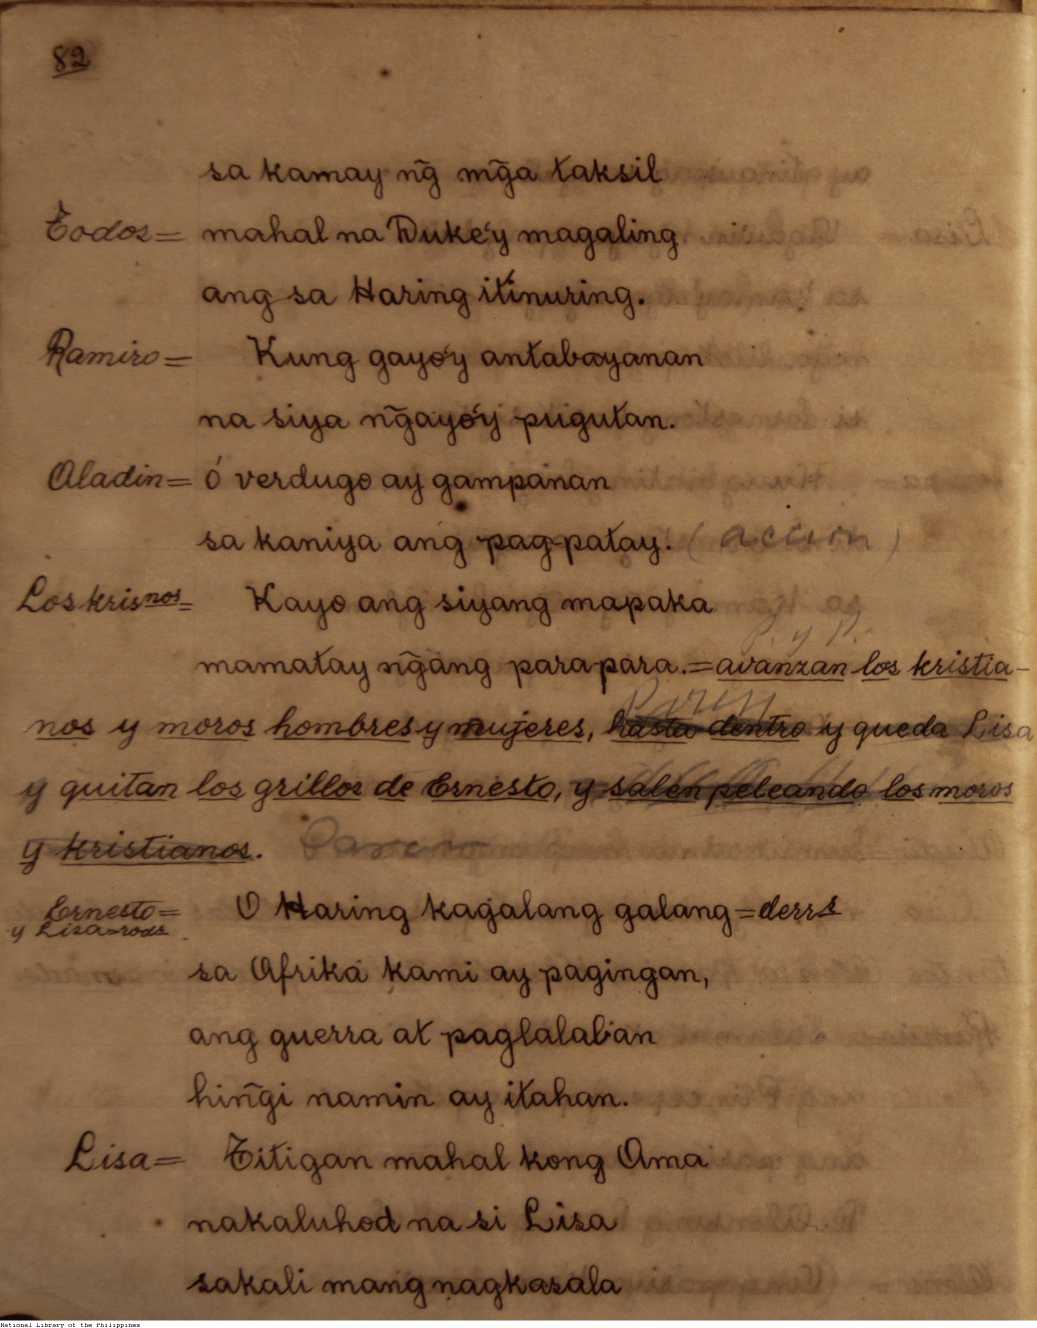 82
sa kamay ng̃ mg̃a taksil
Todos= mahal na Duke'y magaling
ang sa Haring itinuring.
Ramiro= Kung gayo'y antabayanan
na siya ng̃ayo'y pugutan.
Aladin= ó verdugo ay gampanan
sa kaniya ang pag-patay. (accion)
Los krisnos= Kayo ang siyang mapaka
P. y P.
mamatay ng̃ang parapara.=avanzan los kristia-
nos y moros hombres y mujeres, hasta dentro y queda Lisa
y quitan los grillos de Ernesto, y salen peleando los moros
y kristianos.
Ernesto= O Haring kagalang galang=
y Lisa=rods
sa Afrika kami ay pagingan,
ang guerra at paglalaban
hing̃i namin ay itahan.
Lisa= Titigan mahal kong Ama
nakaluhod na si Lisa
sakali mang nagkasala
National Library of the Philippines